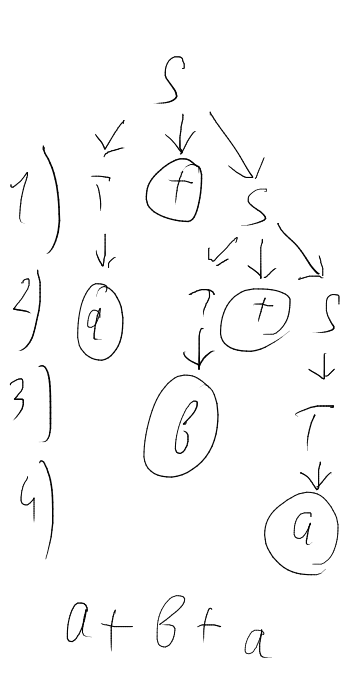 S
1) T + S
2) a T + S
3) b T
4) a
a + b + a